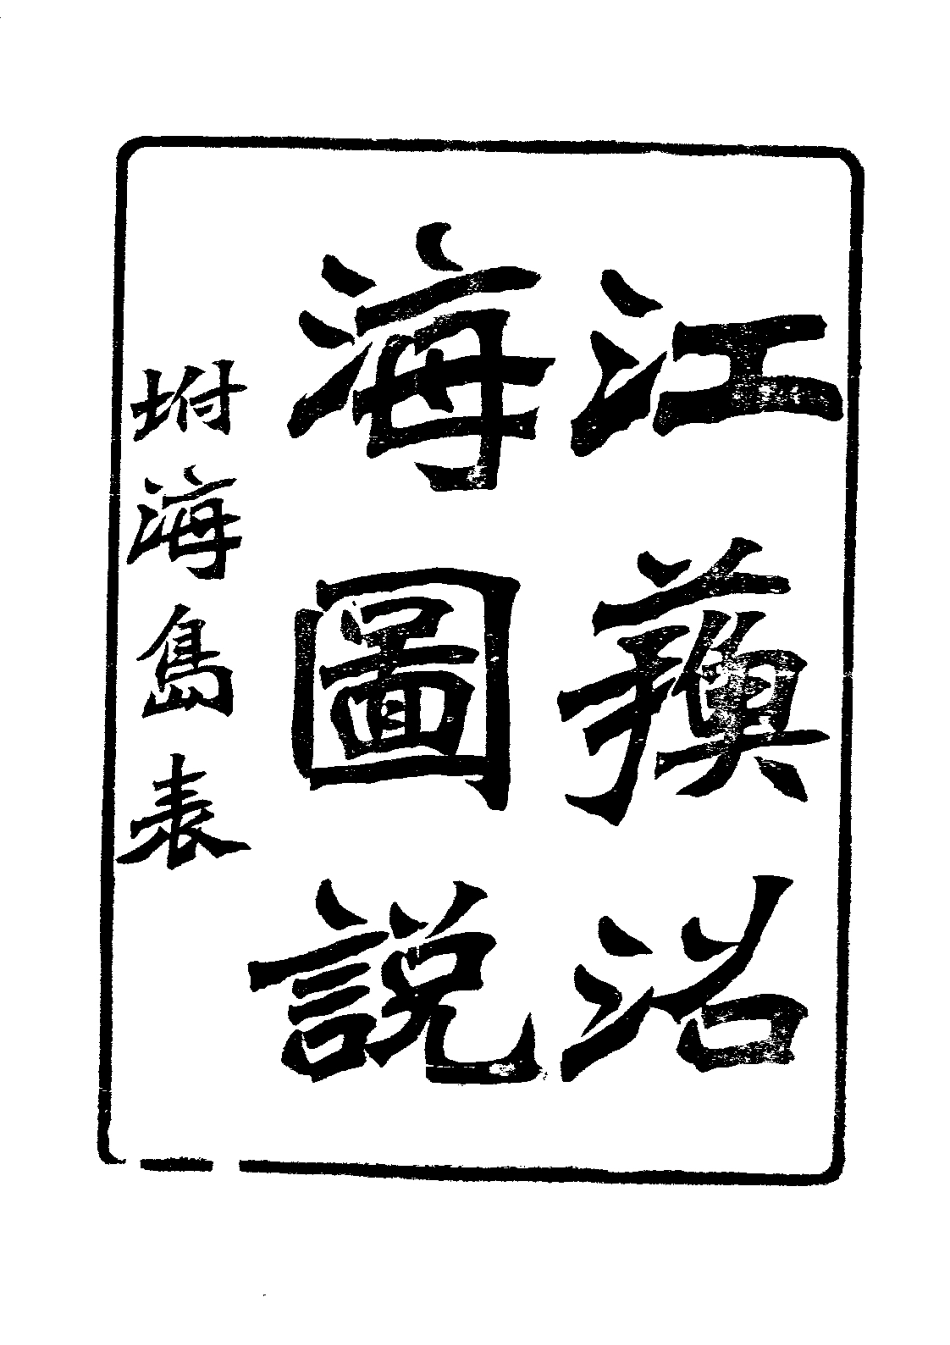 江蘇沿
海圖說
坿海島表